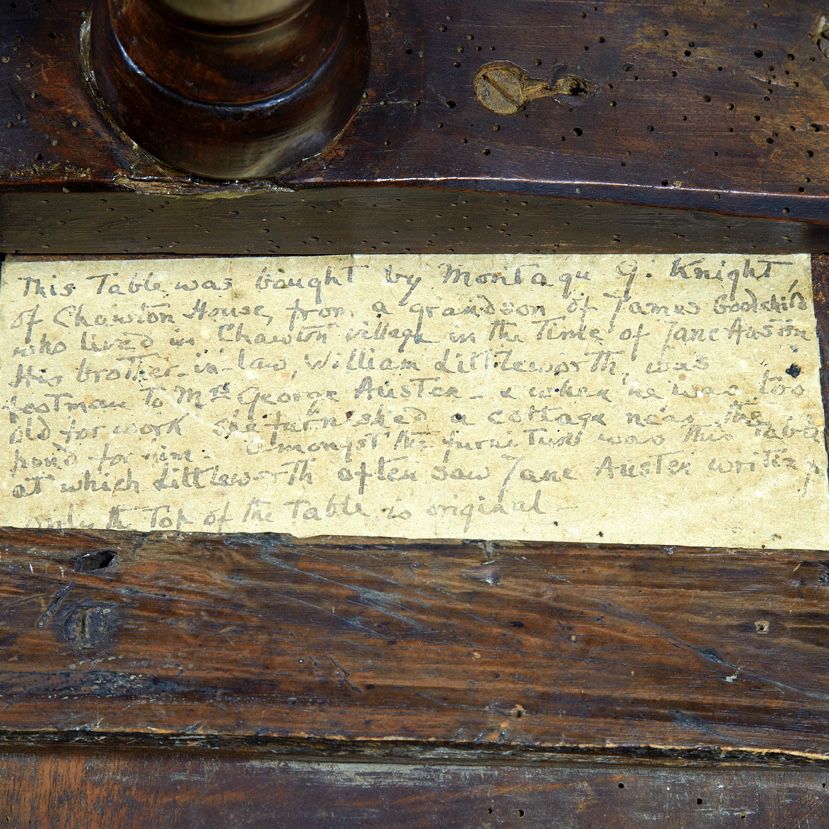 This Table was bought by Montagu G. Knight
of Chawton House, from a grandson of James Goodchild
who lived in Chawton village in the Time of Jane Austen
His brother-in-law, William Littleworth was
Footman to Mrs George Austen - & when he was too
old for work she furnished a cottage near the
hond for him. Amongst the furniture was this Table
at which Littleworth often saw Jane Austen writing
Only the Top of the Table is original -